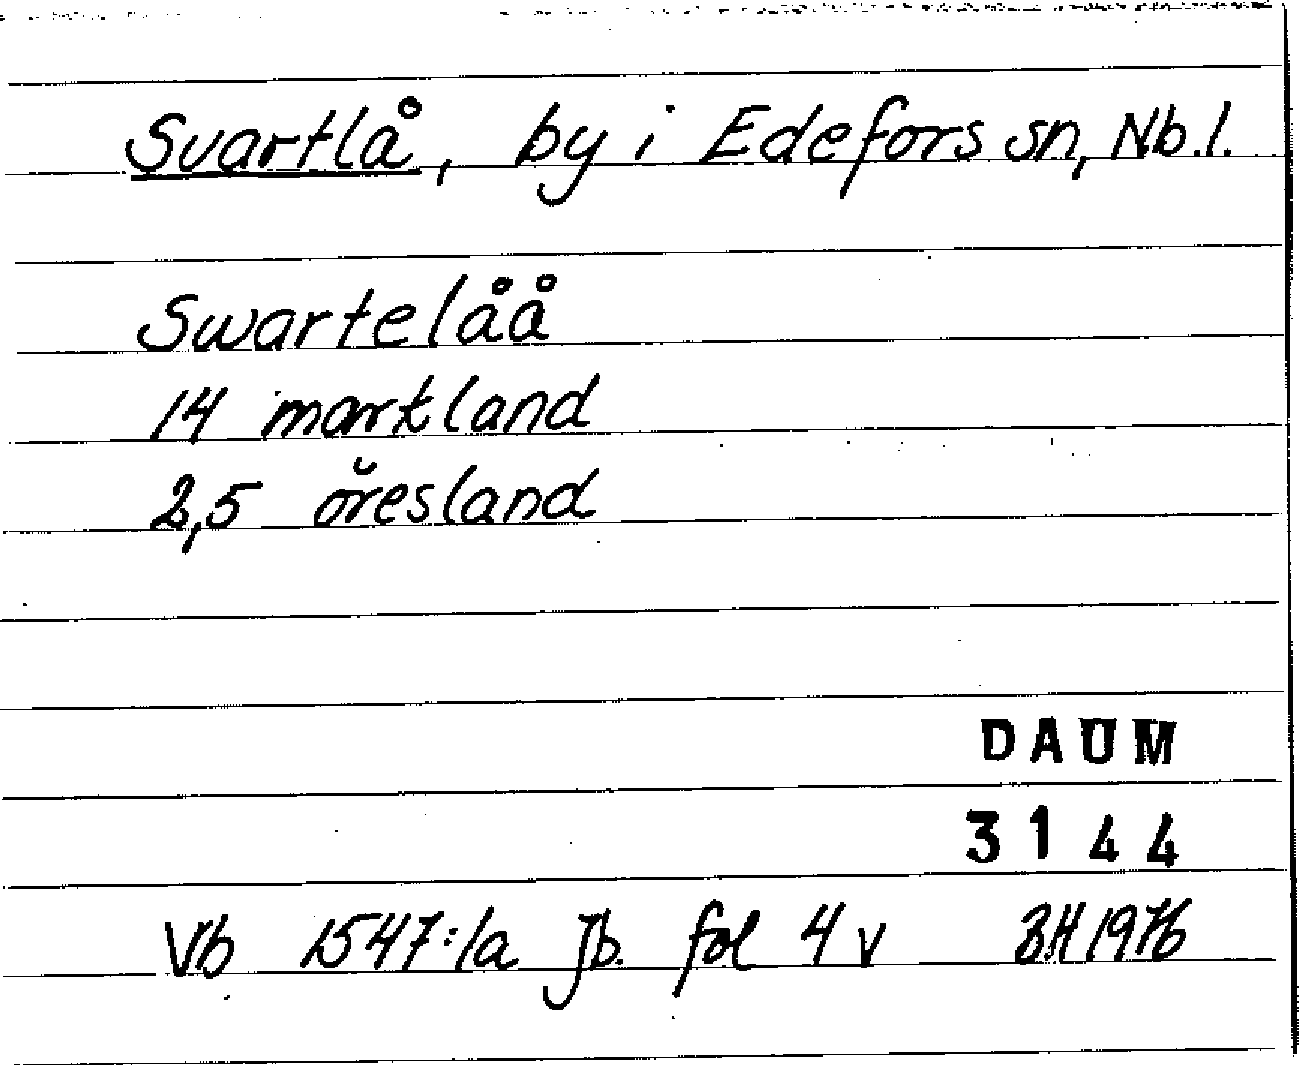 Svartlå, by i Edefors sn, Nb.l.
Swartelåå
14 markland
2,5 öresland
DAUM
3144
Vb 1547:1a Jb. fol 4 v 1976